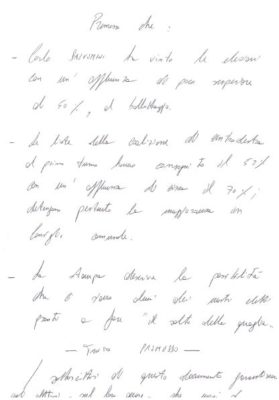 Premesso che :
- Carlo ha vinto le elezioni
con un' affluenza di poco superiore
al 50%, al ballottaggio.
- Le liste della coalizione di centrodestra
al primo turno hanno conseguito il 52%
con un' affluenza di circa il 70%;
detengono pertanto la maggioranza in
Consiglio comunale.
- La stampa descrive la possibilità
che ci siano alcuni dei nostri eletti
pronti a fare "il salto della quaglia.
— Tutto PREMESSO —
I sottoscrittori di questo documento